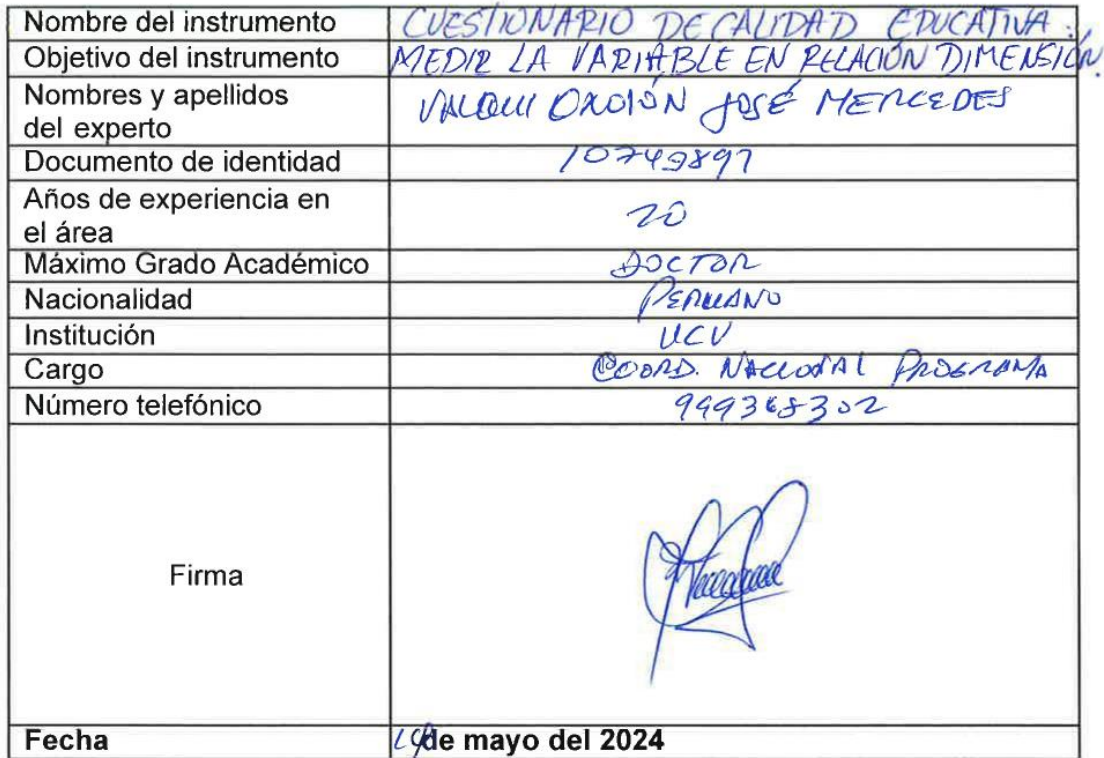 Nombre del instrumento CUESTIONARIO DE CALIDAD EDUCATIVA.
Objetivo del instrumento MEDIR LA VARIABLE EN RELACIÓN DIMENSIÓN.
Nombres y apellidos
del experto VALQUI OXOLÓN JOSÉ MERCEDES
Documento de identidad 10749897
Años de experiencia en
el área 20
Máximo Grado Académico DOCTOR
Nacionalidad PERUANO
Institución UCV
Cargo COORD. NACIONAL PROGRAMA
Número telefónico 999368302
Firma
Fecha de mayo del 2024